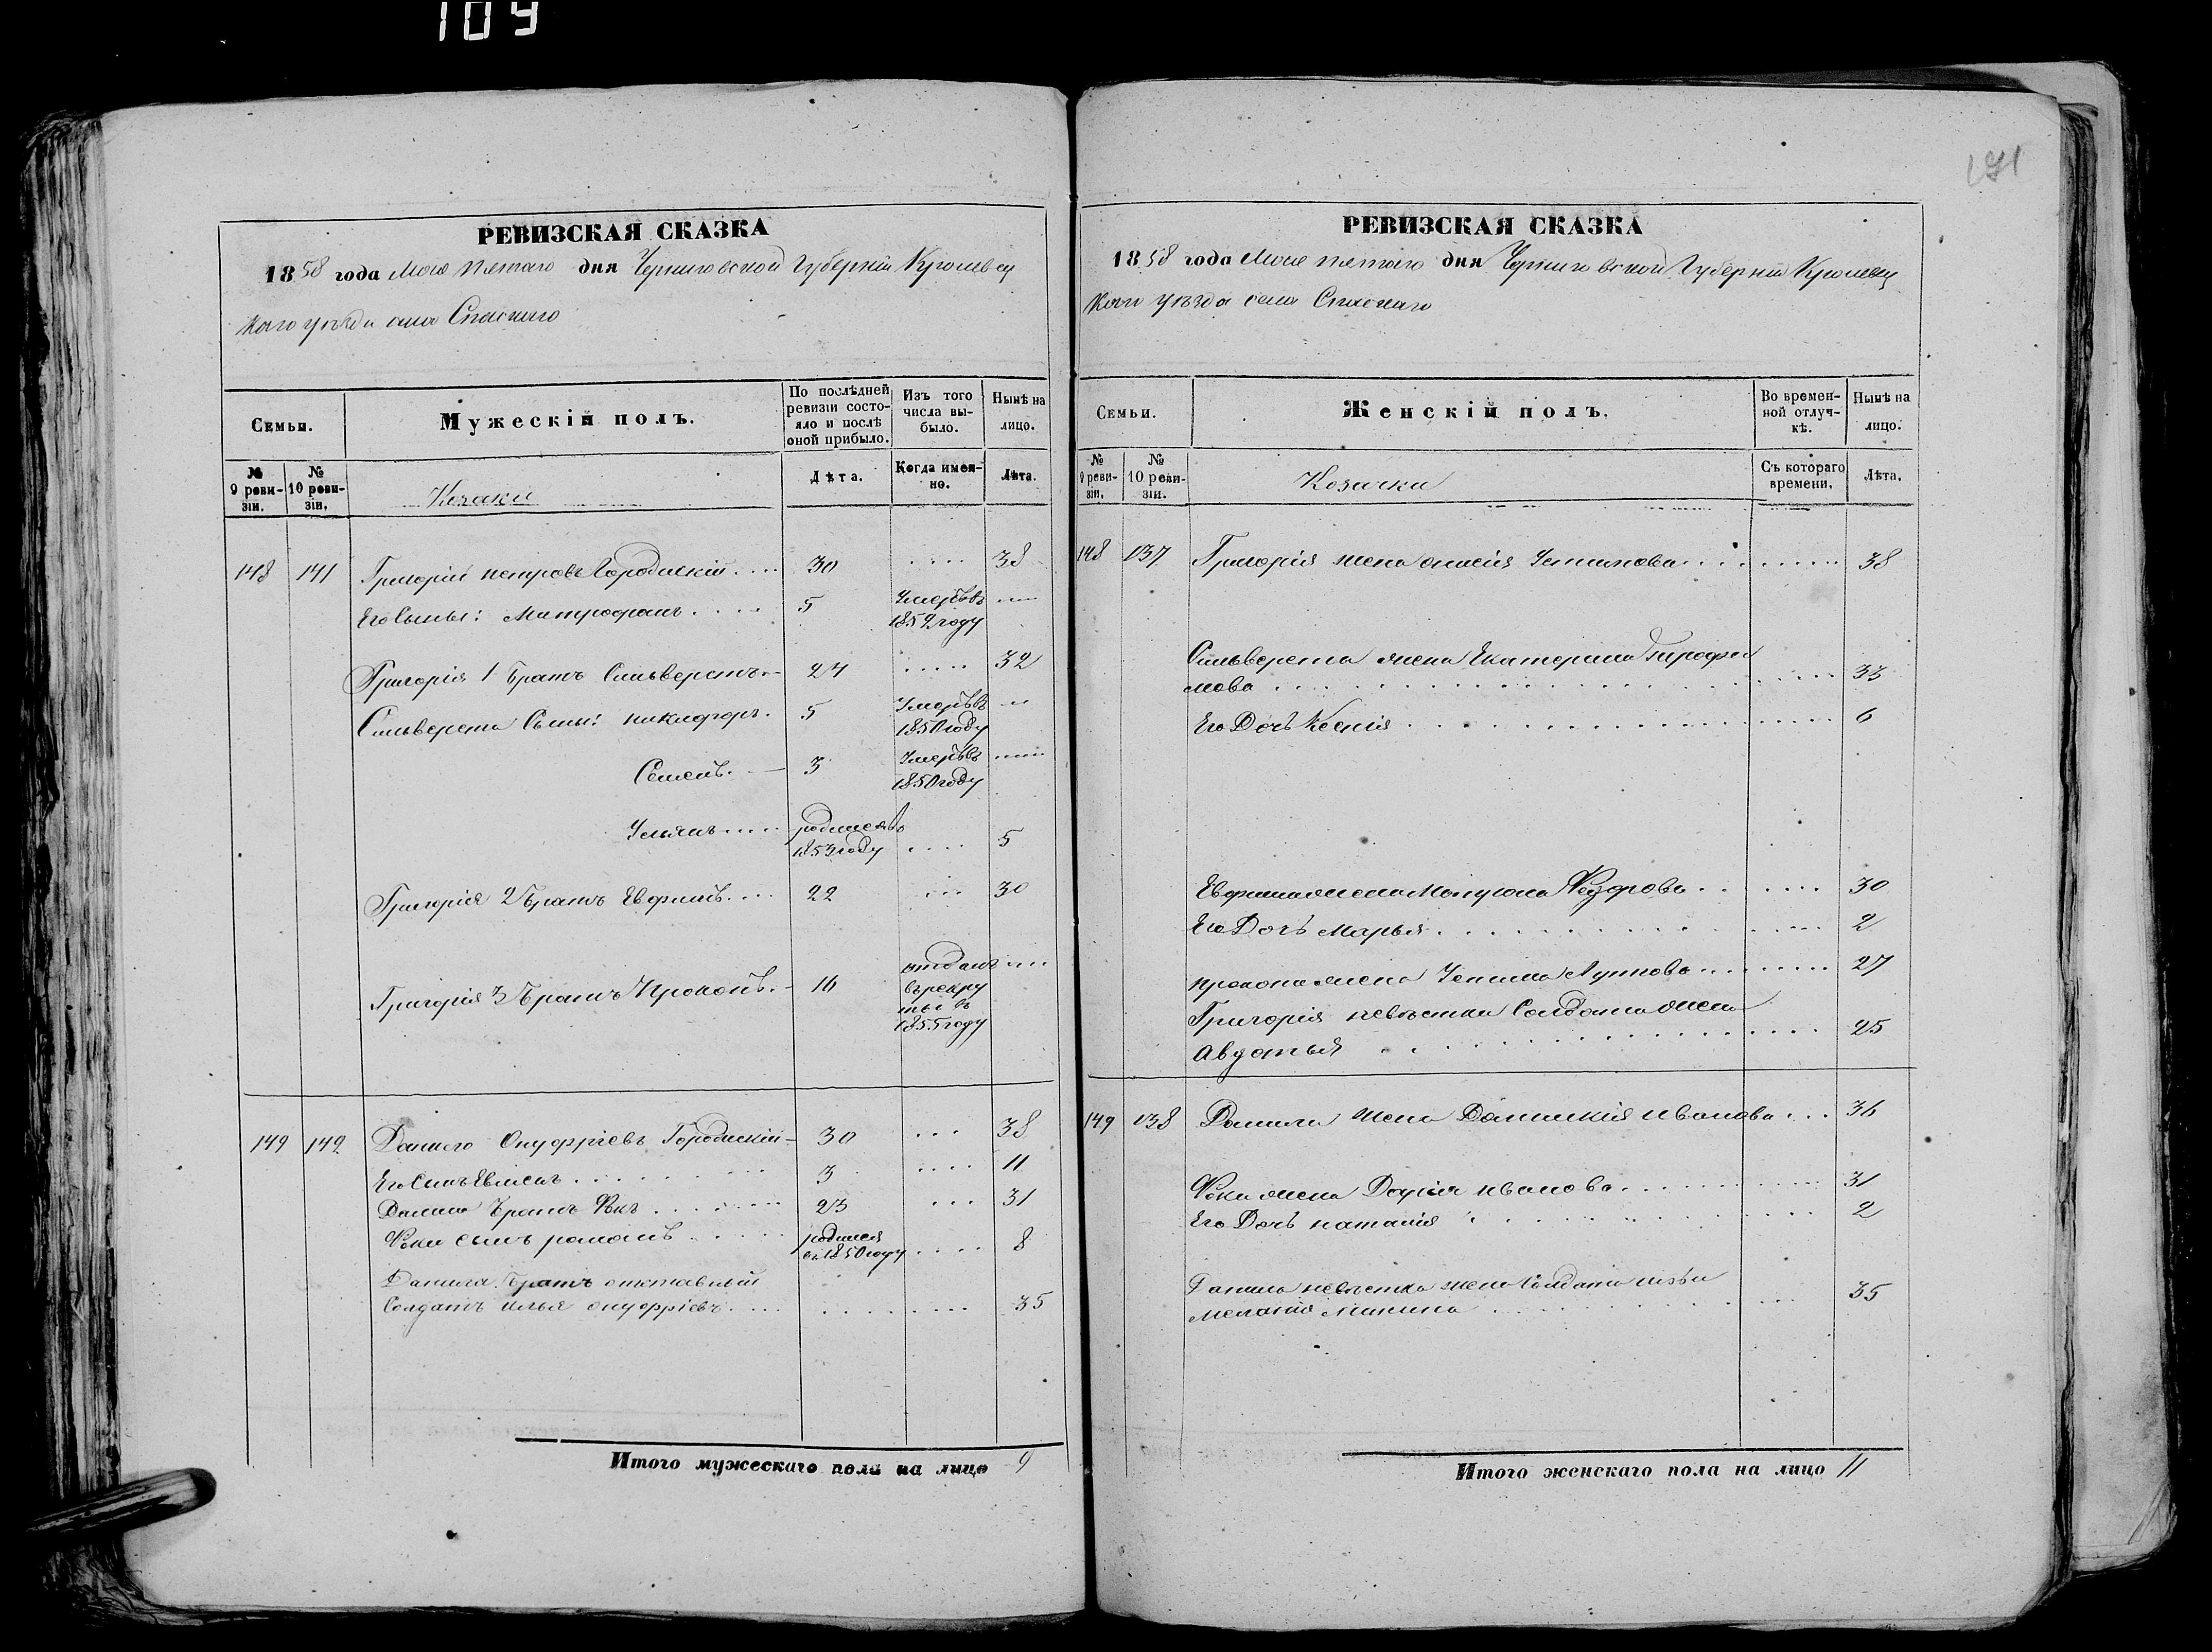 109
РЕВИЗСКАЯ СКАЗКА
1858 года Мая пятаго дня Черниговской Губерніи Кролевец
каго уѣзда села Спаскаго
Семьи.
Мужескій полъ.
По послѣдней ревизіи состояло и послѣ оной прибыло.
Изъ того числа выбыло.
Нынѣ на лицо.
№ 9 ревизіи.
№ 10 ревизіи.
Козаки
Лѣта.
Когда именно.
Лѣта.
148 141 Григорій петровъ Городискій .... 30 .... 38
Его Сыны: Митрофанъ .... 5 Умеръ въ ....
1852 году
Григорія 1 Братъ Сильверстъ 24 ..... 32
Сильверста Сыны: никифоръ. 5 Умеръ въ
1850 году
Семенъ. 3 Умеръ въ ....
1850 году
Ульянъ .... родился въ
1853 году .... 5
Григорія 2 Братъ Евфимъ .... 22 .... 30
Григорія 3 Братъ Прокопъ. 16 отданъ ....
въ рекру
ты въ
1855 году
149 142 Данило Онуфріевъ Городискій 30 ... 38
Его Сынъ Евмен 3 .... 11
Данила Братъ Фока 23 ... 31
Фоки сынъ романъ родился
въ 1850 году .... 8
Данила Братъ отставный
Солдатъ илья онуфріевъ .... 35
Итого мужескаго пола на лицо 9
РЕВИЗСКАЯ СКАЗКА
1858 года Мая пятаго дня Черниговской Губерніи Кролевец
каго уѣзда села Спаскаго
Семьи.
Женскій полъ.
Во временной отлучкѣ.
Нынѣ на лицо.
№ 9 ревизіи.
№ 10 ревизіи.
Козачки
Съ котораго времени.
Лѣта.
148 137 Григорія жена Устимова 38
Сильверста жена Екатерина Трофи
мова 33
Его Дочь Ксенія 6
Евфима жена Федорова 30
Его Дочь Марья 2
прокопа жена 27
Григорія невѣстка Солдата жена
Авдотья 25
149 138 Данила жена Домникія иванова ... 36
Фоки жена Дарія иванова 31
Его Дочь наталія 2
Данила невѣстка жена Солдата ильи
меланія Минина 35
Итого женскаго пола на лицо 11